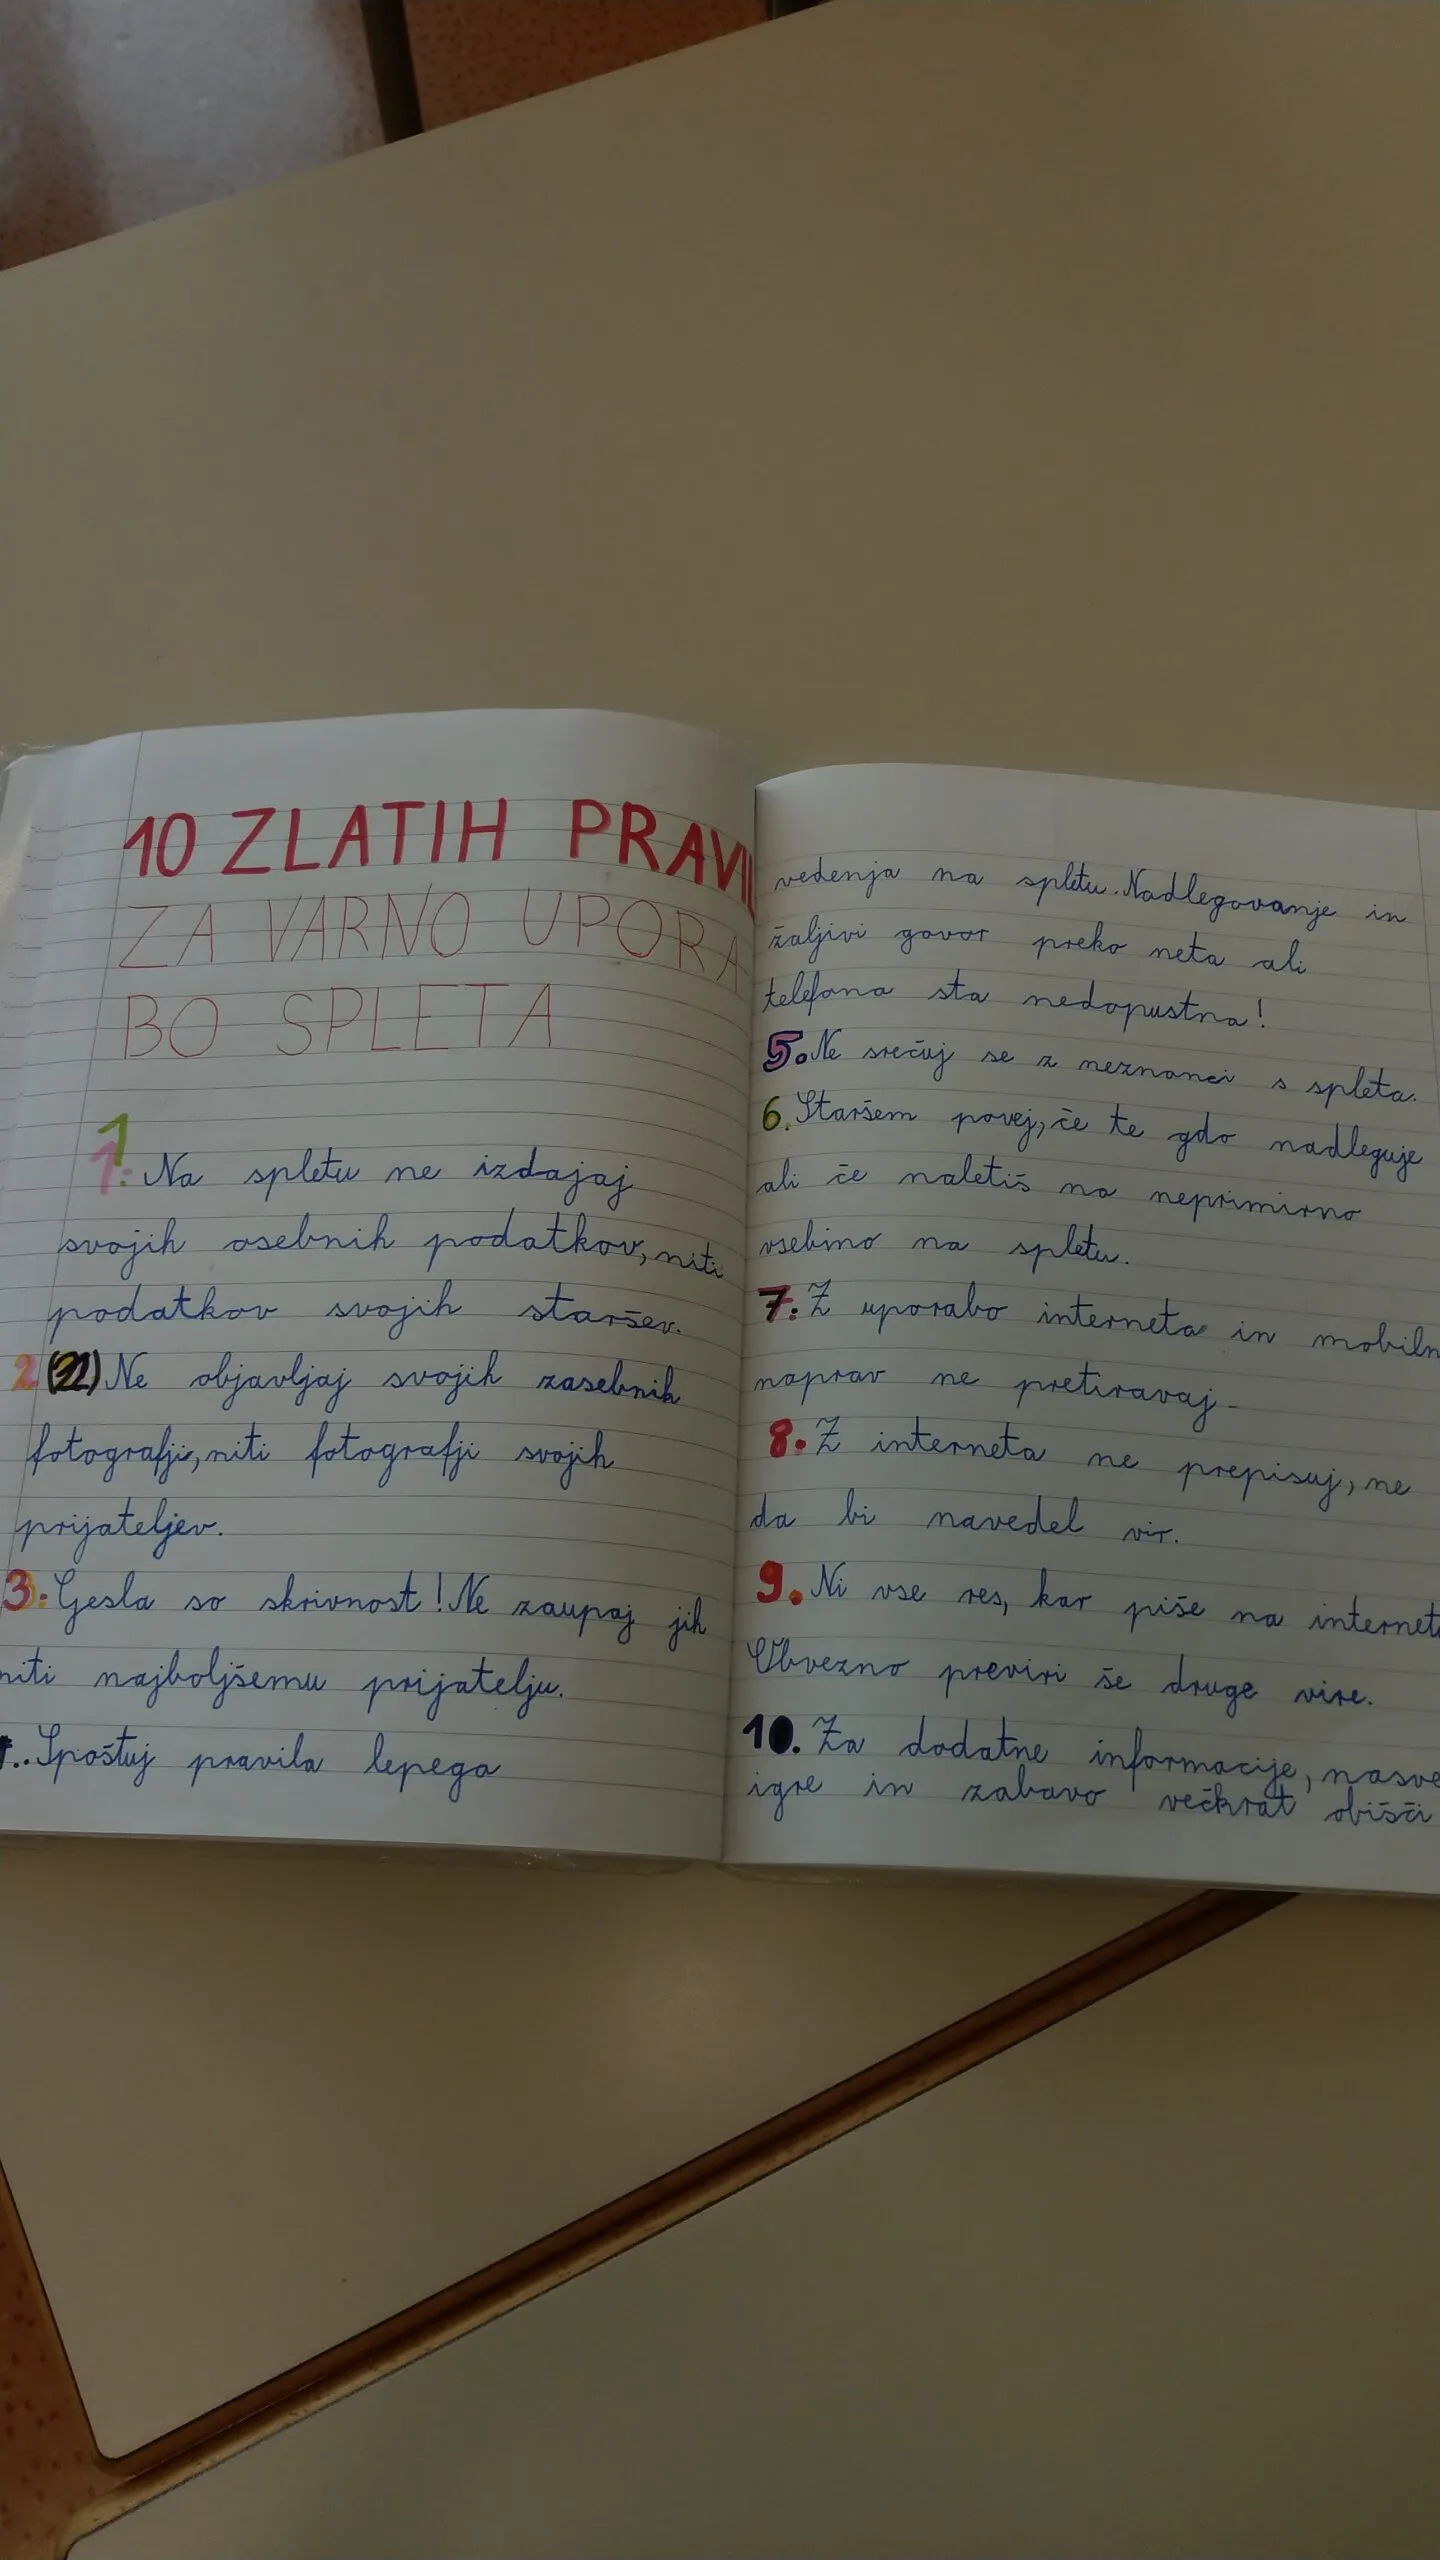 10 ZLATIH PRAVIL
ZA VARNO UPORA
BO SPLETA
1.
1. Na spletu ne izdajaj
svojih osebnih podatkov, niti
podatkov svojih staršev.
2 (22) Ne objavljaj svojih zasebnih
fotografji, niti fotografji svojih
prijateljev.
3. Gesla so skrivnost! Ne zaupaj jih
niti najboljšemu prijatelju.
Spoštuj pravila lepega
vedenja na spletu. Nadlegovanje in
žaljivi govor preko neta ali
telefona sta nedopustna!
5. Ne srečuj se z neznanci s spleta.
6. Staršem povej, če te gdo nadleguje
ali če naletiš na neprimirno
vsebino na spletu.
7. Z uporabo interneta in mobiln
naprav ne pretiravaj.
8. Z interneta ne prepisuj, ne
da bi navedel vir.
9. Ni vse res, kar piše na internet
Obvezno previri še druge vire.
10. Za dodatne informacije, nasve
igre in zabavo večkrat obišči